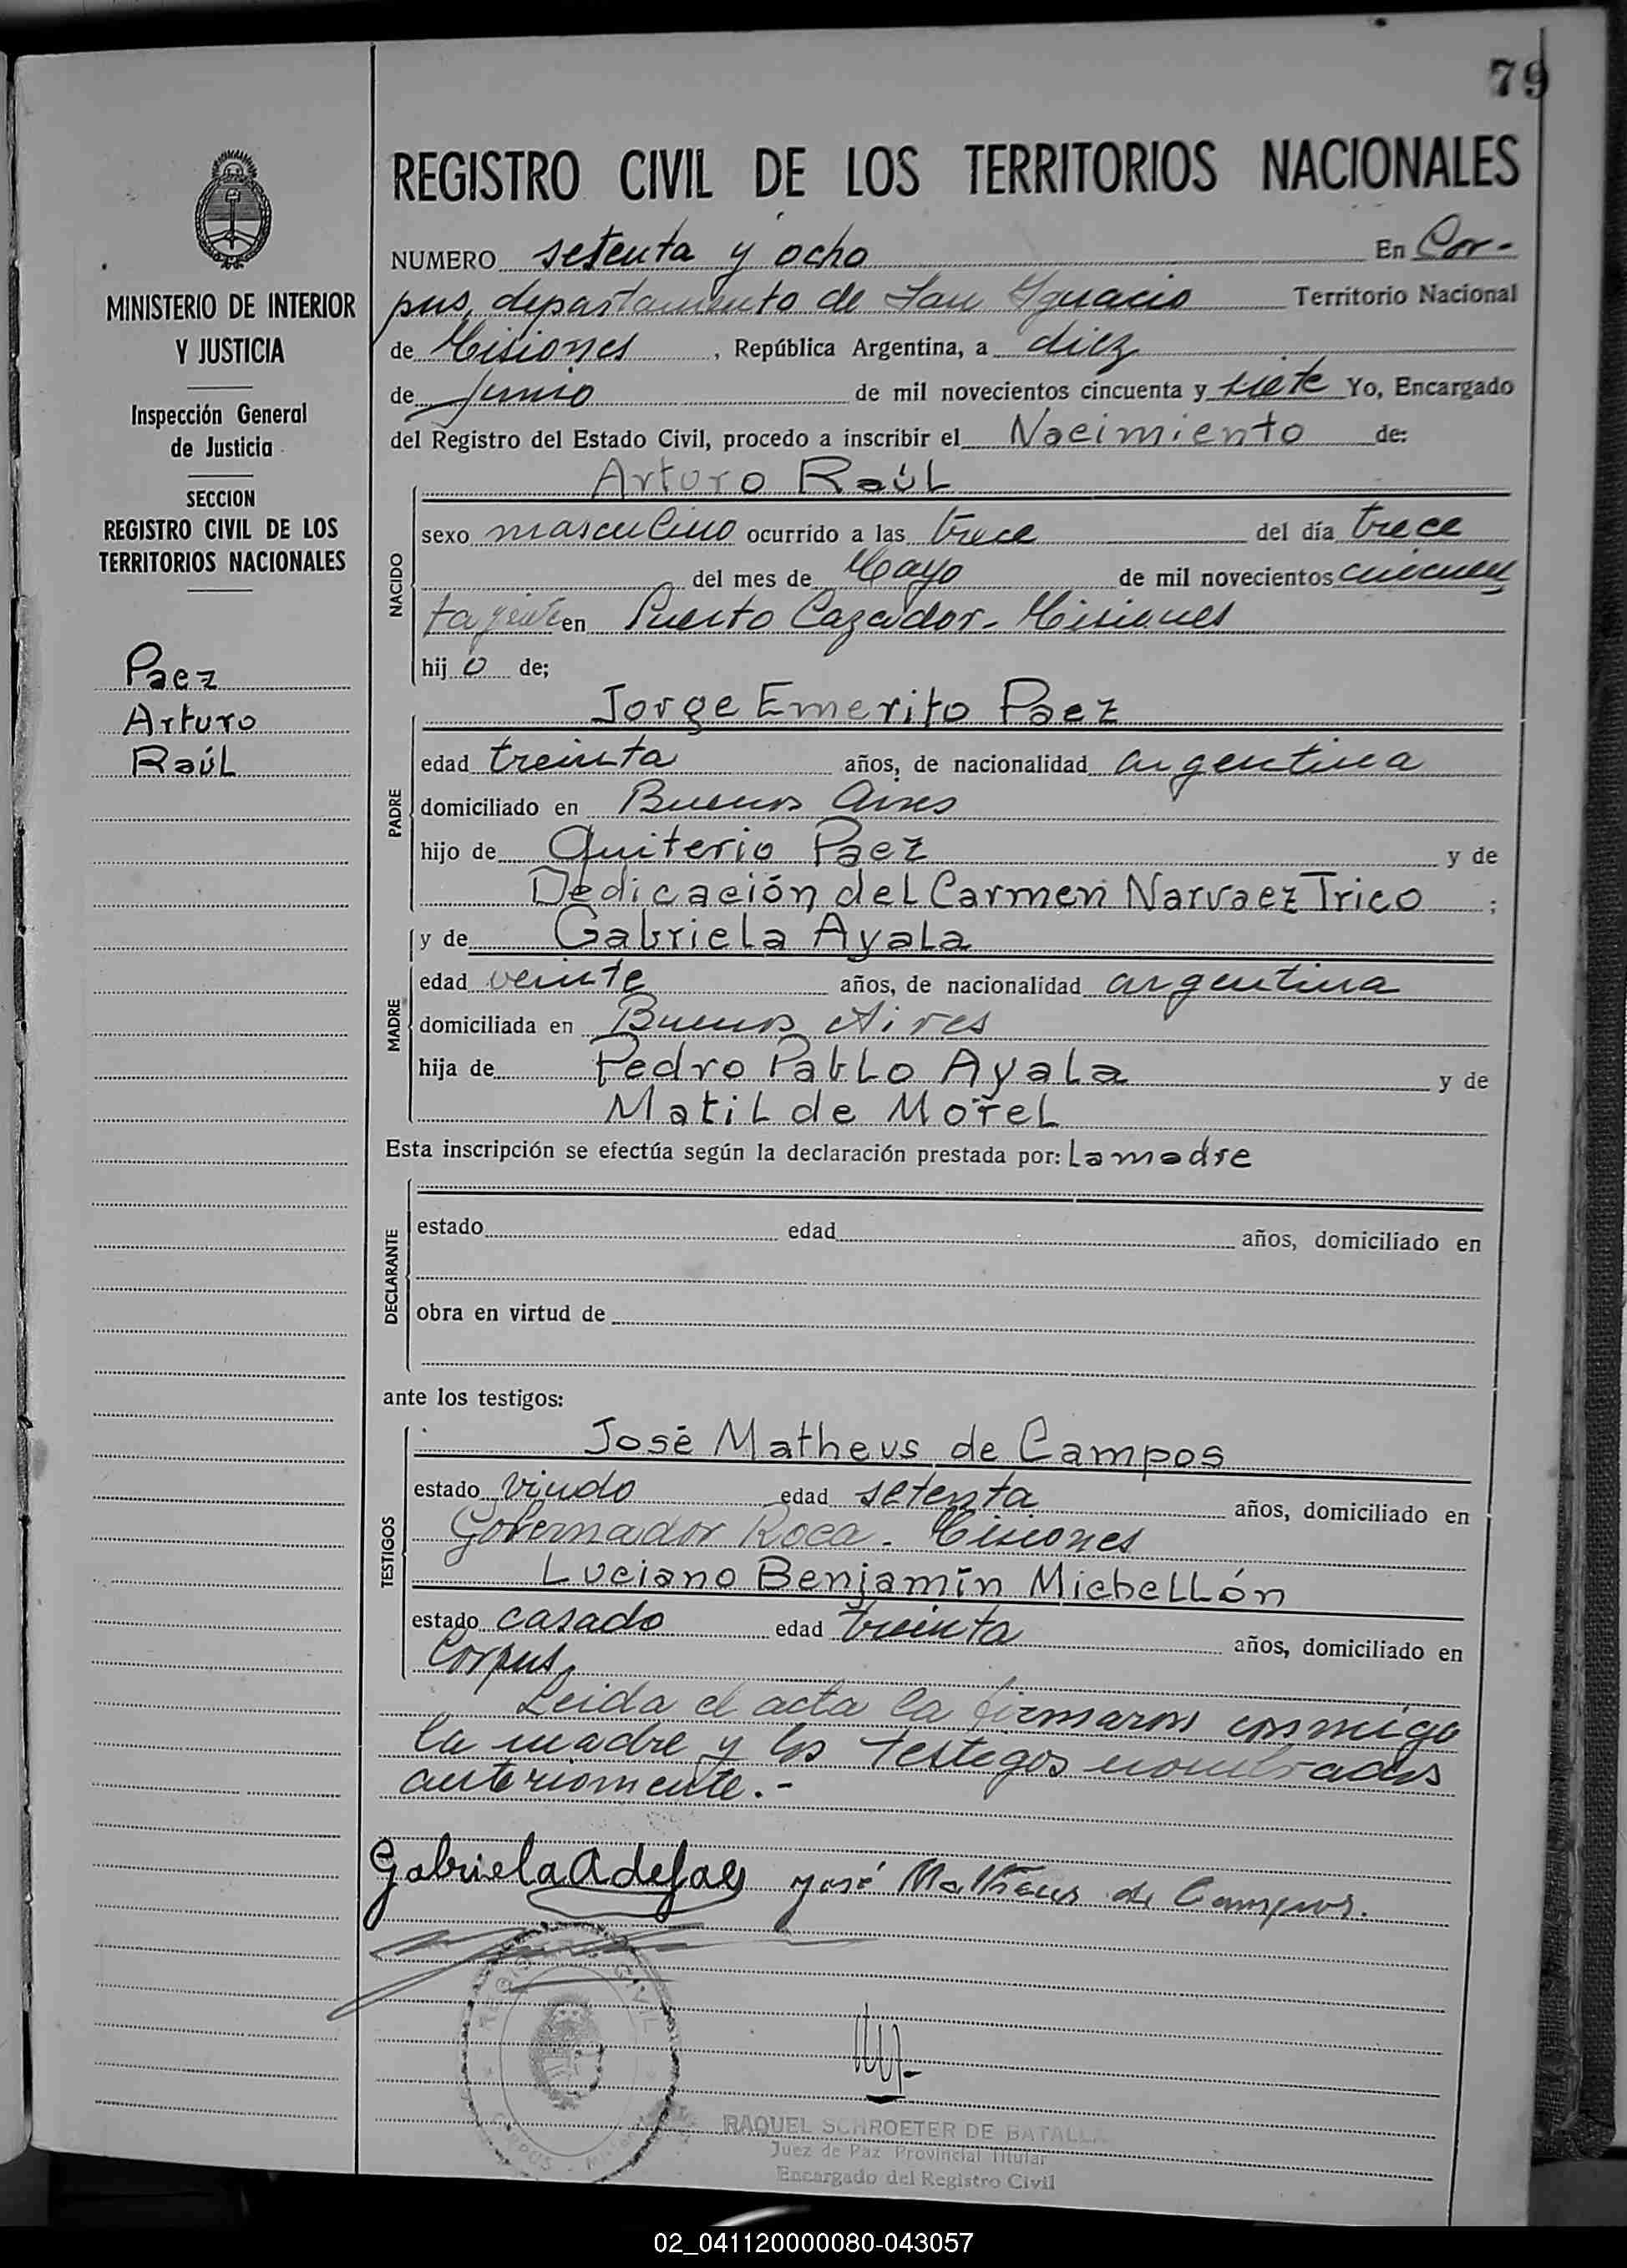 79
REGISTRO CIVIL DE LOS TERRITORIOS NACIONALES
MINISTERIO DE INTERIOR
Y JUSTICIA
Inspección General
de Justicia
SECCION
REGISTRO CIVIL DE LOS
TERRITORIOS NACIONALES
Paez
Arturo
Raúl
NUMERO setenta y ocho En Cor-
pus, departamento de San Ygnacio Territorio Nacional
de Misiones, República Argentina, a diez
de Junio de mil novecientos cincuenta y siete Yo, Encargado
del Registro del Estado Civil, procedo a inscribir el Nacimiento de:
Arturo Raúl
NACIDO
sexo masculino ocurrido a las trece del día trece
del mes de Mayo de mil novecientos cincuen
ta y siete en Puerto Cazador - Misiones
hij o de;
Jorge Emerito Paez
PADRE
edad treinta años, de nacionalidad argentina
domiciliado en Buenos Aires
hijo de Quiterio Paez y de
Dedicación del Carmen Narvaez Trico ;
y de Gabriela Ayala
MADRE
edad veinte años, de nacionalidad argentina
domiciliada en Buenos Aires
hija de Pedro Pablo Ayala y de
Matilde Morel
Esta inscripción se efectúa según la declaración prestada por: La madre
DECLARANTE
estado edad años, domiciliado en
obra en virtud de
ante los testigos:
TESTIGOS
José Matheus de Campos
estado viudo edad setenta años, domiciliado en
Gobernador Roca - Misiones
Luciano Benjamín Michellón
estado casado edad treinta años, domiciliado en
Corpus
Leida el acta la firmaron conmigo
la madre y los testigos nombrados
anteriormente.-
Gabriela José Matheus de Campos.
REGISTRO CIVIL
CORPUS
RAQUEL SCHROETER DE BATALLA
Juez de Paz Provincial Titular
Encargado del Registro Civil
02_041120000080-043057